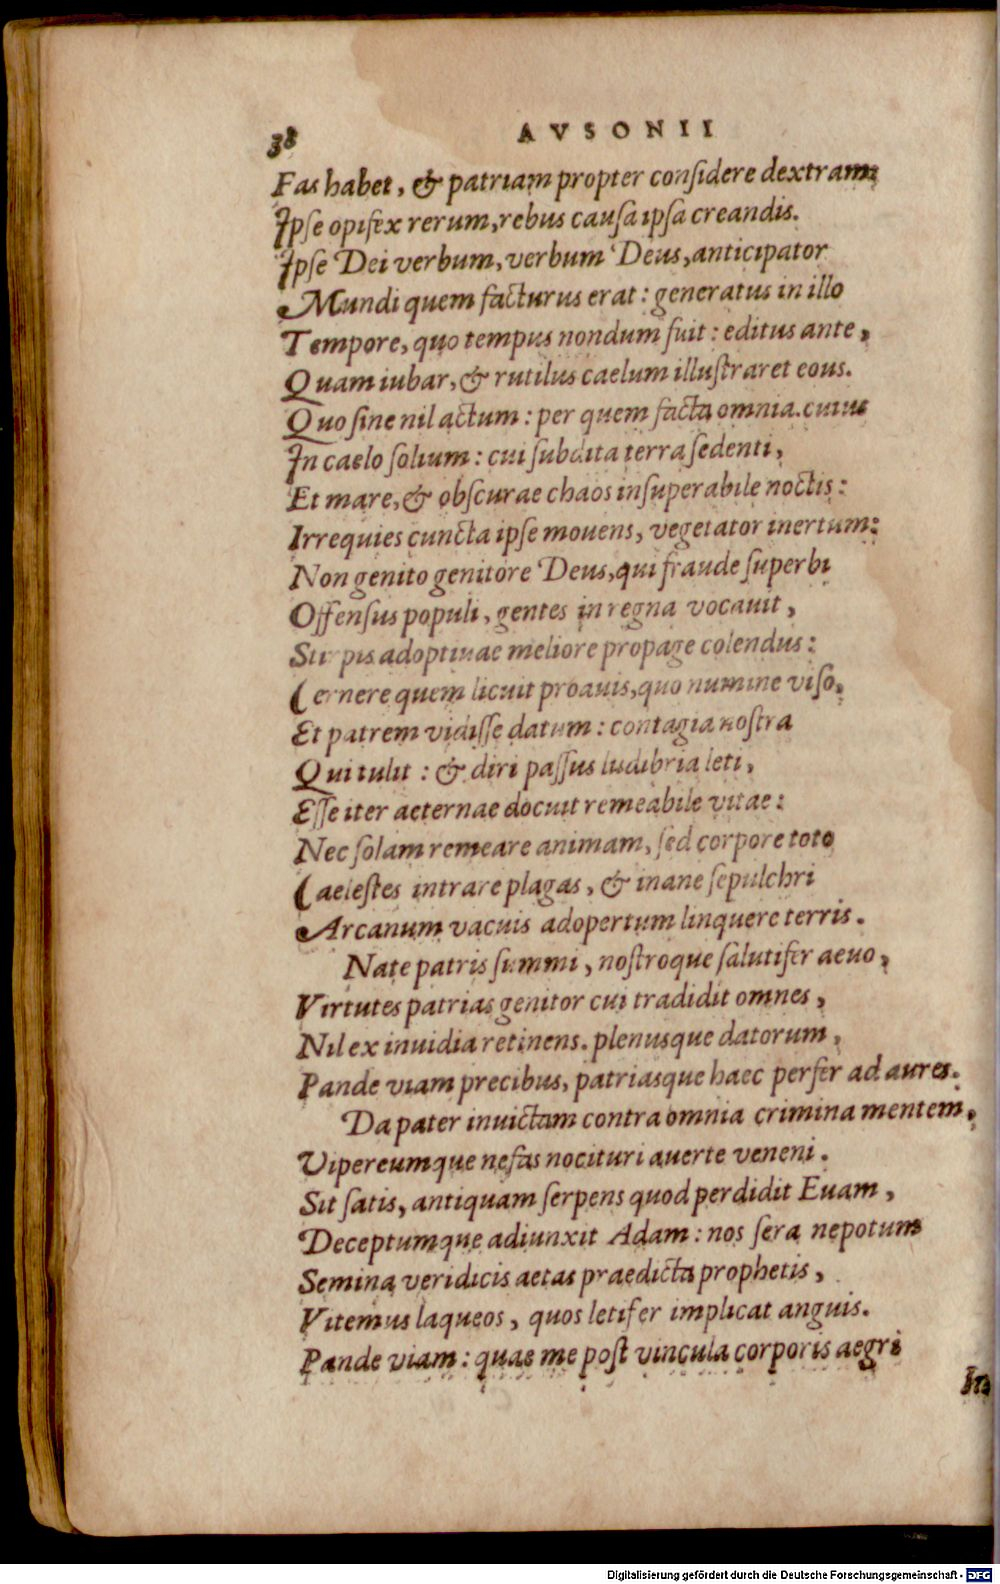 38 AVSONII
Fas habet, & patriam propter considere dextram
Ipse opifex rerum, rebus causa ipsa creandis.
Ipse Dei verbum, verbum Deus, anticipator
Mundi quem facturus erat: generatus in illo
Tempore, quo tempus nondum fuit: editus ante,
Quam iubar, & rutilus caelum illustraret eous.
Quo sine nil actum: per quem facta omnia. cuius
In caelo solium: cui subdita terra sedenti,
Et mare, & obscurae chaos insuperabile noctis:
Irrequies cuncta ipse mouens, vegetator inertum:
Non genito genitore Deus, qui fraude superbi
Offensus populi, gentes in regna vocauit,
Stirpis adoptiuae meliore propage colendus:
Cernere quem licuit proauis, quo numine viso,
Et patrem vidisse datum: contagia nostra
Qui tulit: & diri passus ludibria leti,
Esse iter aeternae docuit remeabile vitae:
Nec solam remeare animam, sed corpore toto
Caelestes intrare plagas, & inane sepulchri
Arcanum vacuis adopertum linquere terris.
Nate patris summi, nostroque salutifer aeuo,
Virtutes patrias genitor cui tradidit omnes,
Nil ex inuidia retinens. plenusque datorum,
Pande viam precibus, patriasque haec perfer ad aures.
Da pater inuictam contra omnia crimina mentem,
Vipereumque nefas nocituri auerte veneni.
Sit satis, antiquam serpens quod perdidit Euam,
Deceptumque adiunxit Adam: nos sera nepotum
Semina veridicis aetas praedicta prophetis,
Vitemus laqueos, quos letifer implicat anguis.
Pande viam: quae me post vincula corporis aegri
Digitalisierung gefördert durch die Deutsche Forschungsgemeinschaft - DFG